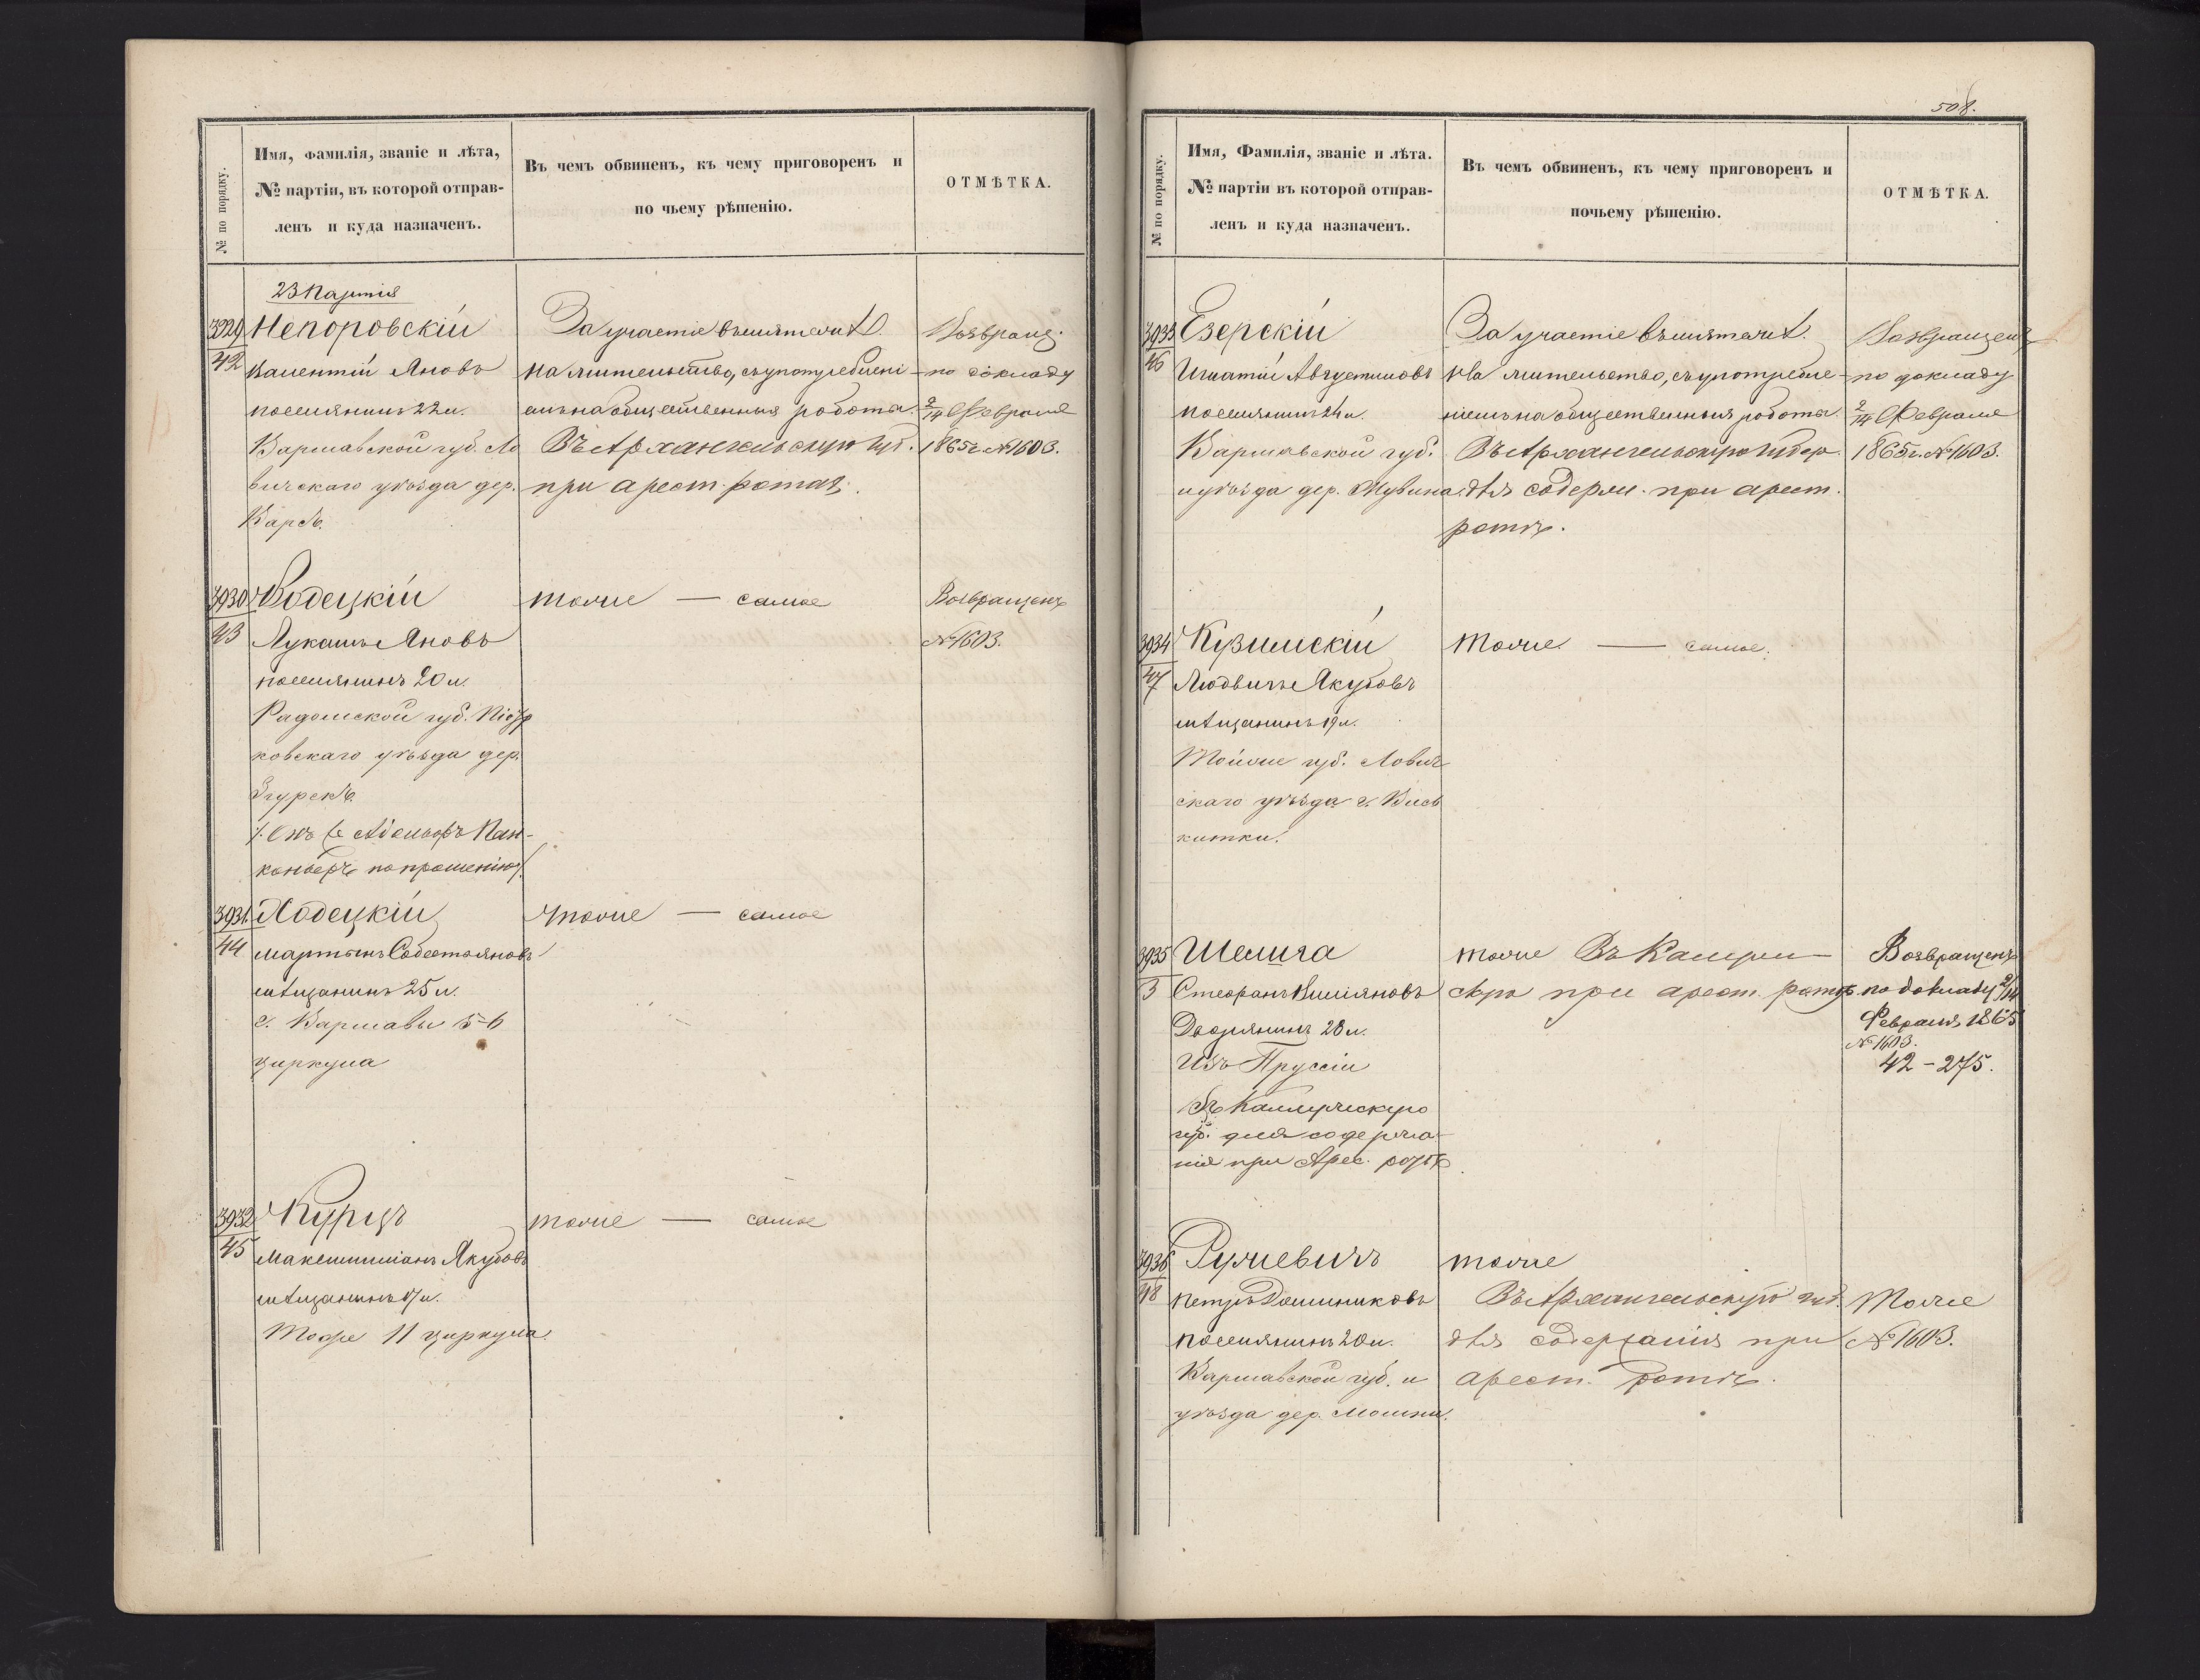 № по порядку.
Имя, фамилія, званіе и лѣта,
№ партіи, въ которой отправ-
ленъ и куда назначенъ.
Въ чемъ обвиненъ, къ чему приговоренъ и
по чьему рѣшенію.
ОТМѢТКА.
23 Партія
3929
42
Непоровскій
Валентій Яновъ
поселянинъ 22 л.
Варшавской губ. Ло
вичскаго уѣзда дер.
За участіе въ мятежѣ
На жительство, съ употребленi-
емъ на общественныя работы.
Въ Архангельскую губ.
при арест. ротах.
Возвращ.
по докладу
2/14 Февраля
1865 г. № 1603.
3930
43
Водецкій
Лукашъ Яновъ
поселянинъ 20 л.
Радомской губ. Піотр
ковскаго уѣзда дер.
тоже — самое
Возвращенъ
№ 1603.
по прошенію
3931
44
Ходецкій
Мартынъ Себестіяновъ
мѣщанинъ 25 л.
г. Варшавы 5-6
циркула
тоже — самое
3932
45
Курцъ
Максимиліанъ Якубовъ
мѣщанинъ 17 л.
Тоже 11 циркула
тоже — самое
508.
№ по порядку.
Имя, Фамилія, званіе и лѣта.
№ партіи въ которой отправ-
ленъ и куда назначенъ.
Въ чемъ обвиненъ, къ чему приговоренъ и
почьему рѣшенію.
ОТМѢТКА.
3933
46
Езерскій
Игнатій Августиновъ
поселянинъ 24 л.
Варшавской губ.
и уѣзда дер.
За участіе въ мятежѣ.
На жительство, съ употребле-
ніемъ на общественныя работы.
Въ Архангельскую губер.
для содерж. при арест.
ротѣ.
Возвращенъ
по докладу
2/14 Февраля
1865 г. № 1603.
3934
47
Кузимскій
Людвигъ Якубовъ
мѣщанинъ 19 л.
Тойже губ. Лович
скаго уѣзда г. Вис
китки.
тоже — самое.
3935
3
Шелига
Стефанъ
Дворянинъ 28 л.
Изъ Пруссіи
Въ Калужскую
губ. для содержа-
нія при Арес. ротѣ
тоже Въ
скую при арест. ротѣ
Возвращенъ
по докладу 2/14
Февраля 1865
№ 1603.
42 - 275.
3936
48
Ружевичъ
Петръ Доминиковъ
поселянинъ 20 л.
Варшавской губ. и
уѣзда дер.
тоже
Въ Архангельскую губ.
для содержанія при
арест. ротѣ.
Тоже
№ 1603.